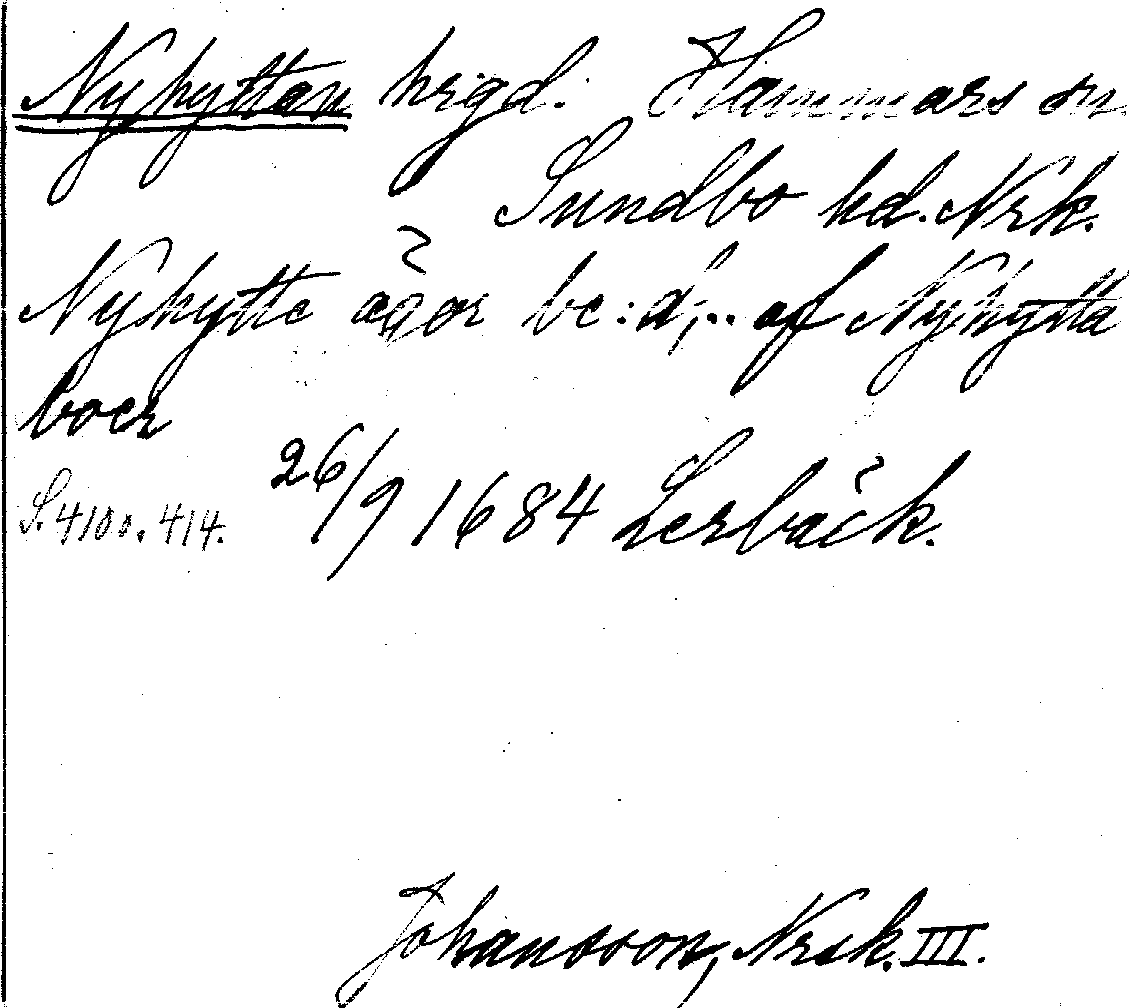 Nyhyttan hrgd. Hammars sn.
Sundbo hd. Nrk.
Nyhytte be:d;.. af Nyhytta
boer
S. 4100. 414. 26/9 1684 Lerbäck.
Johansson, Nrsk. III.